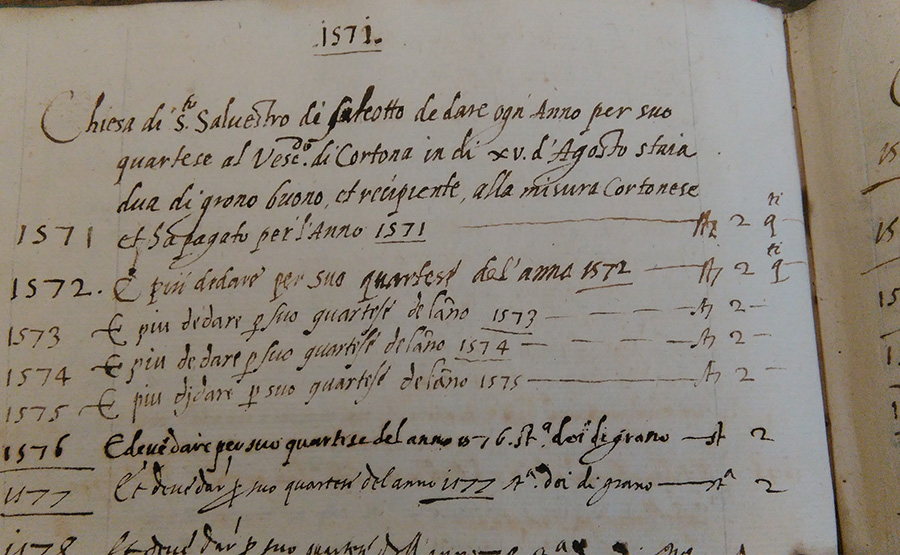 .1571.
Chiesa di S.to Saluestro di saleotto de dare ogni Anno per suo
quartese al Vesc.do di Cortona in di xv. d'Agosto staia
dua di grono buono, et recipiente, alla misura Cortonese
1571 et ha pagato per l'Anno 1571 — st 2 q ti
1572. E piu dedare per suo quartese del'anna 1572 — st 2 q ti
1573 E piu dedare p suo quartese delano 1573 — — — st 2 —
1574 E piu dedare p suo quartese delano 1574 — — — st 2 —
1575 E piu didare p suo quartese delano 1575 — st 2 —
1576 E deue dare per suo quartese del anno 1576. st.a doi di grano — st 2
1577 Et deue dar p suo quartese del anno 1577 st.a doi di grano — st.a 2
1578 Et deue dar p suo quartese dell'anno